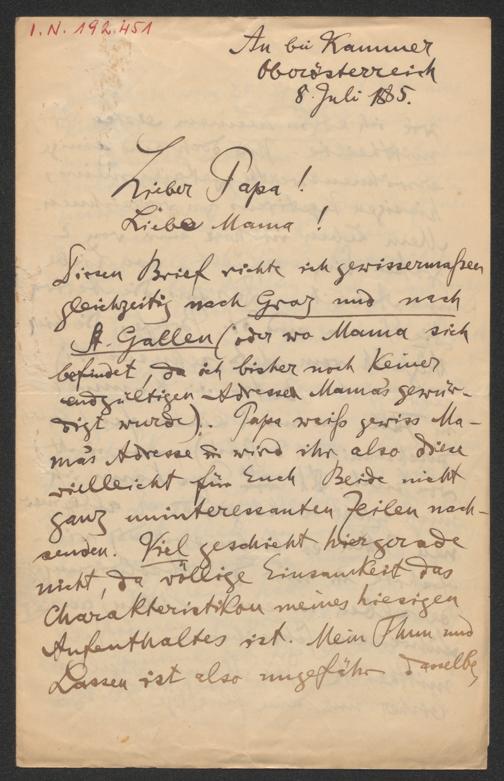 I.N. 192.451
An bei Kammer
Oberösterreich
8. Juli 1885.
Lieber Papa!
Liebe Mama!
Diesen Brief richte ich gewissermaßen
gleichzeitig nach Graz und nach
St. Gallen (oder wo Mama sich
befindet, da ich bisher noch keiner
endgültigen Adresse Mama's gewür-
digt wurde). Papa weiß gewiss Ma-
ma's Adresse u. wird ihr also diese
vielleicht für Euch Beide nicht
ganz uninteressanten Zeilen nach-
senden. Viel geschieht hier gerade
nicht, da völlige Einsamkeit das
Charakteristikon meines hiesigen
Aufenthaltes ist. Mein Thun und
Lassen ist also ungefähr dasselbe,